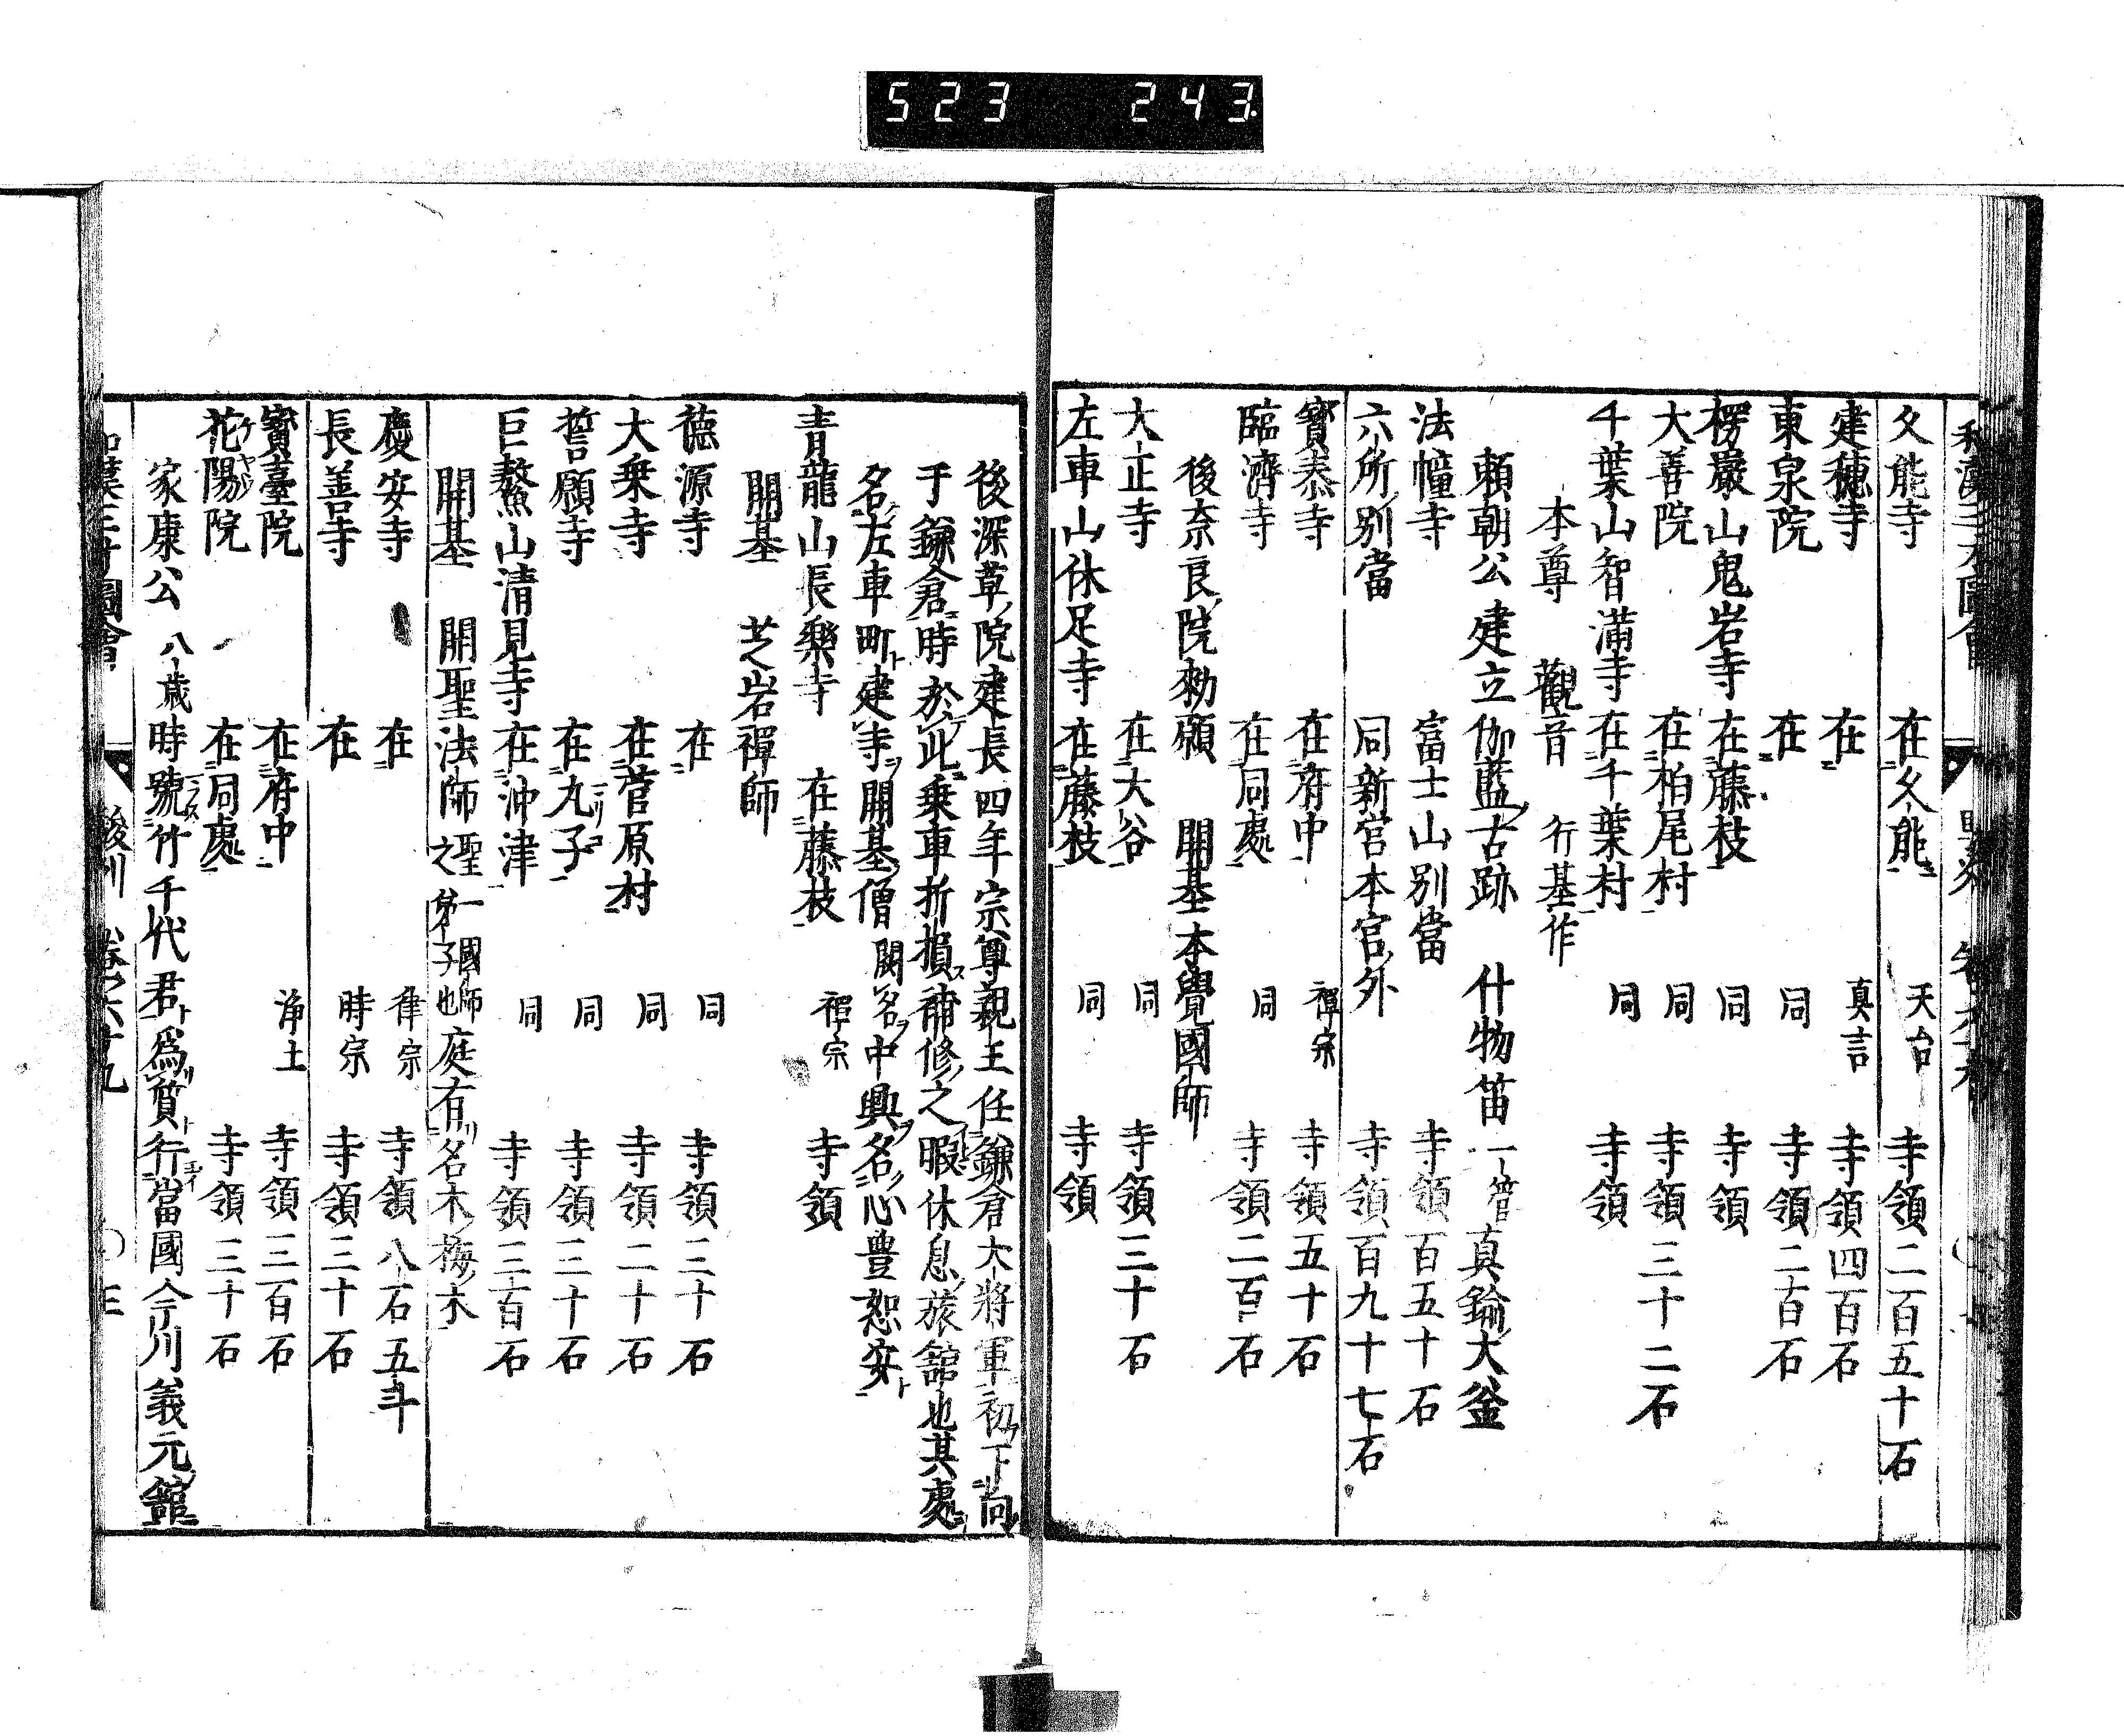 523 243
久能寺 在久能 天台 寺領二百五十石
建穗寺 在 真言 寺領四百石
東泉院 在 同 寺領二百石
楞巖山鬼岩寺 在藤枝 同 寺領
大善院 在柏尾村 同 寺領三十二石
千葉山智滿寺 在千葉村 同 寺領
本尊 觀音 行基作
頼朝公建立伽藍古跡 什物笛一管真鍮大釜
法幢寺 富士山別當 寺領百五十石
六所別當 同新宮本宮外 寺領百九十七石
寶泰寺 在府中 禪宗 寺領五十石
臨濟寺 在同處 同 寺領二百石
後奈良院勅願 開基本覺國師
大正寺 在大谷 同 寺領三十石
左車山休足寺 在藤枝 同 寺領
後深草院建長四年宗尊親王任鎌倉大將軍初下向
于鎌倉時於此乗車折損補修之暇休息旅舘也其處
名左車町建寺開基僧闕名中興名心豊恕安
青龍山長樂寺 在藤枝 禪宗 寺領
開基 芝岩禪師
德源寺 在 同 寺領三十石
大乗寺 在菅原村 同 寺領二十石
誓願寺 在九子 同 寺領三十石
巨鰲山清見寺 在沖津 同 寺領三百石
開基 開聖法師聖一國師之弟子也庭有名木梅木
慶安寺 在 律宗 寺領八石五斗
長善寺 在 時宗 寺領三十石
寳臺院 在府中 淨土 寺領三百石
花陽院 在同處 寺領三十石
家康公八歳時號竹千代君爲質行當國今川義元舘
和漢三才圖會 駿州 卷之六十九 〇三